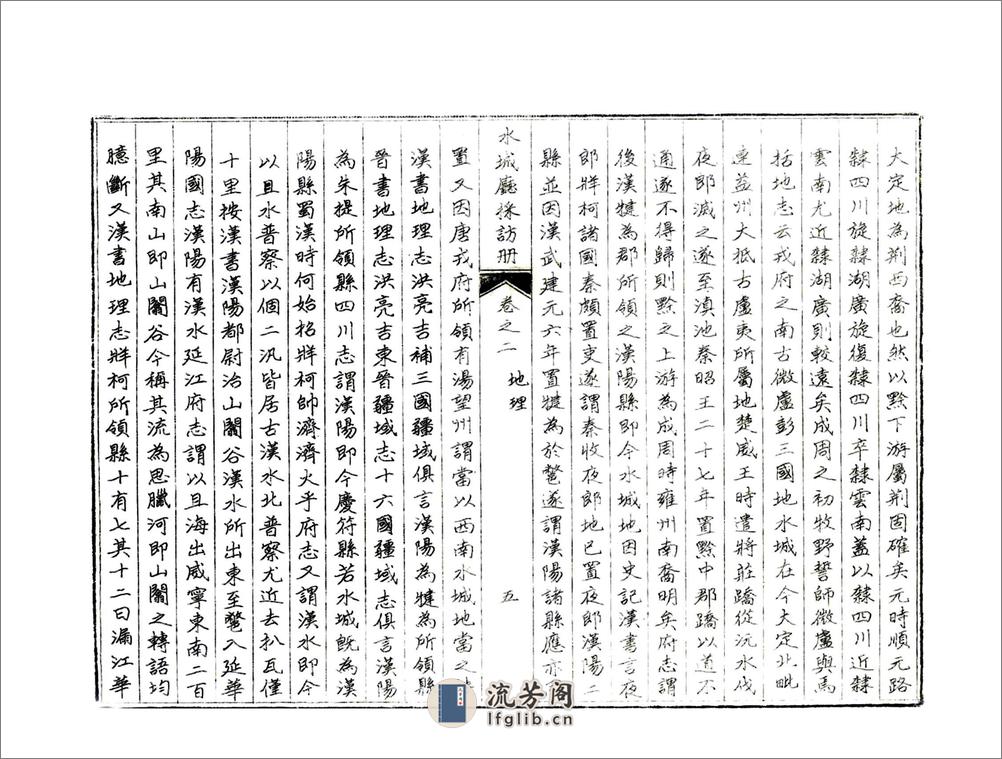 大定地為荆西裔也然以黔下游屬荆固確矣元時順元路
隸四川旋隸湖廣旋復隸四川卒隸雲南蓋以隸四川近隸
雲南尤近隸湖廣則較遠矣成周之初牧野誓師微盧與馬
括地志云戎府之南古微盧彭三國地水城在今大定北毗
連益州大抵古盧夷所屬地楚威王時遣將莊蹻從沅水伐
夜郎滅之遂至滇池秦昭王二十七年置黔中郡蹻以道不
通遂不得歸則黔之上游為成周時雍州南裔明矣府志謂
後漢犍為郡所領之漢陽縣即今水城地因史記漢書言夜
郎牂柯諸國秦頗置吏遂謂秦收夜郎地已置夜郎漢陽二
縣並因漢武建元六年置犍為於鄨遂謂漢陽諸縣應亦
水城廳採訪冊 卷之二 地理 五
置又因唐戎府所領有湯望州謂當以西南水城地當之
漢書地理志洪亮吉補三國疆域俱言漢陽為犍為所領縣
晉書地理志洪亮吉東晉疆域志十六國疆域志俱言漢陽
為朱提所領縣四川志謂漢陽即今慶符縣若水城旣為漢
陽縣蜀漢時何始招牂柯帥濟濟火乎府志又謂漢水即今
以且水普察以個二汛皆居古漢水北普察尤近去扒瓦僅
十里按漢書漢陽都尉治山闟谷漢水所出東至鄨入延華
陽國志漢陽有漢水延江府志謂以且海出威寧東南二百
里其南山即山闟谷今稱其流為思臘河即山闟之轉語均
臆斷又漢書地理志牂柯所領縣十有七其十二曰漏江華
流芳阁
lfglib.cn